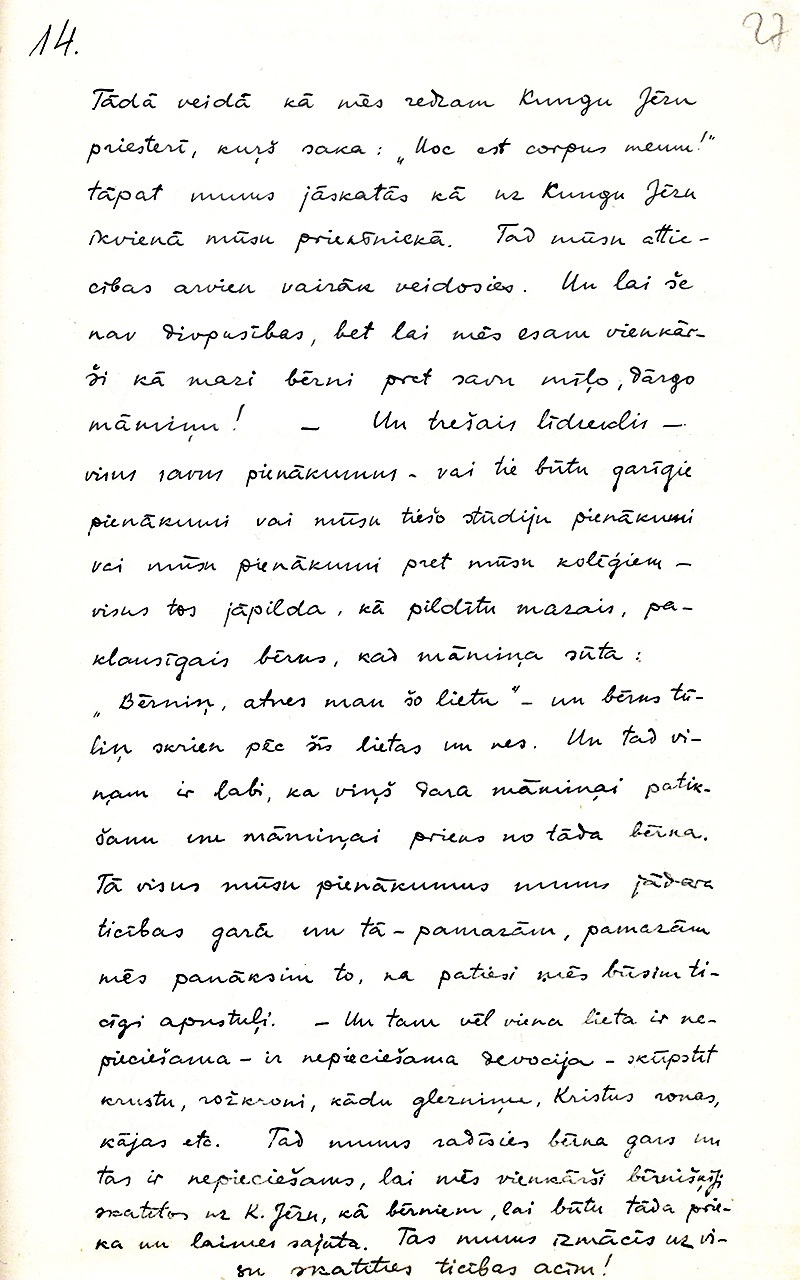 14.
27
Tādā veidā kā mēs redzam Kungu Jēzu
priesterī, kurš saka: „Hoc est corpus meum!"
tāpat mums jāskatās kā uz Kungu Jēzu
ikvienā mūsu priekšniekā. Tad mūsu attie-
cības arvien vairāk veidosies. Un lai še
nav divpusības, bet lai mēs esam vienkār-
ši kā mazi bērni pret savu mīļo, dārgo
māmiņu! — Un trešais līdzeklis —
visus savus pienākumus - vai tie būtu garīgie
pienākumi vai mūsu tiešo stūdiju pienākumi
vai mūsu pienākumi pret mūsu kolēģiem —
visus tos jāpilda, kā pildītu mazais, pa-
klausīgais bērns, kad māmiņa sūta:
„Bērniņ, atnes man šo lietu" — un bērns tū-
liņ skrien pēc šīs lietas un nes. Un tad vi-
ņam ir labi, ka viņš dara māmiņai patik-
šanu un māmiņai prieks no tāda bērna.
Tā visus mūsu pienākumus mums jādara
ticības garā un tā - pamazām, pamazām
mēs panāksim to, ka patiesi mēs būsim ti-
cīgi apustuļi. — Un tam vēl viena lieta ir ne-
pieciešama - ir nepieciešama devocija - skūpstīt
krustu, rožkroni, kādu glezniņu, Kristus ronas,
kājas etc. Tad mums radīsies bērna gars un
tas ir nepieciešams, lai mēs vienkārši bērnišķīgi
skatītos uz K. Jēzu, kā bērniem, lai būtu tāda prie-
ka un laimes sajūta. Tas mums izmācīs uz vi-
su skatīties ticības acīm!